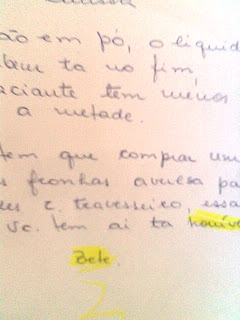 ão em pó, o liquid
bem ta no fim,
aciante tem menos
a metade.
tem que comprar um
s fronhas avulsa pa
es c. travesseiro, essa
vc. tem ai ta horive
Bete.